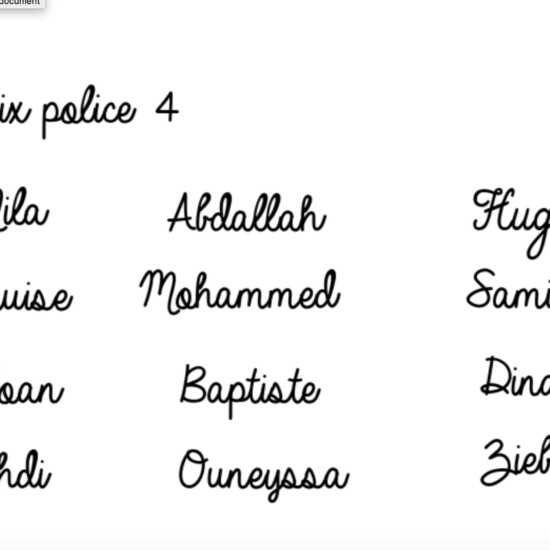 document
ix police 4
ila Abdallah Hug
uise Mohammed Sami
oan Baptiste Dina
hdi Ouneyssa Zieb